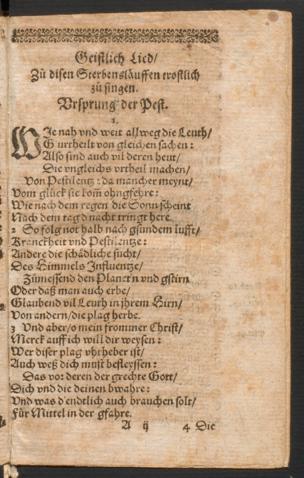 Geistlich Lied/
Zů disen Sterbensläuffen trostlich
zů singen.
Vrsprung der Pest.
1.
WIe nah vnd weit allweg die Leuth/
G urtheilt von gleichen sachen:
Also sind auch vil deren heut/
Die vngleichs vrtheil machen/
Von Pestilentz: da mancher meynt/
Vom glück sie kom ohngfehre:
Wie nach dem regen die Sonn scheint
Nach dem tag d nacht tringt here.
2 So folg not halb nach gsundem lufft/
Kranckheit vnd Pestilentze:
Andere die schädliche sucht/
Des Himmels Influentze/
Zůmessend den Planet'n vnd gstirn
Oder daß man auch erbe/
Glaubend vil Leuth in jhrem Hirn/
Von andern/die plag herbe.
3 Vnd aber/o mein frommer Christ/
Merck auff ich will dir weysen:
Wer diser plag vhrheber ist/
Auch weß dich must befleyssen:
Das vor deren der grechte Gott/
Dich vnd die deinen bwahre:
Vnd was d'endtlich auch brauchen solt/
Für Mittel in der gfahre.
A ij 4 Die